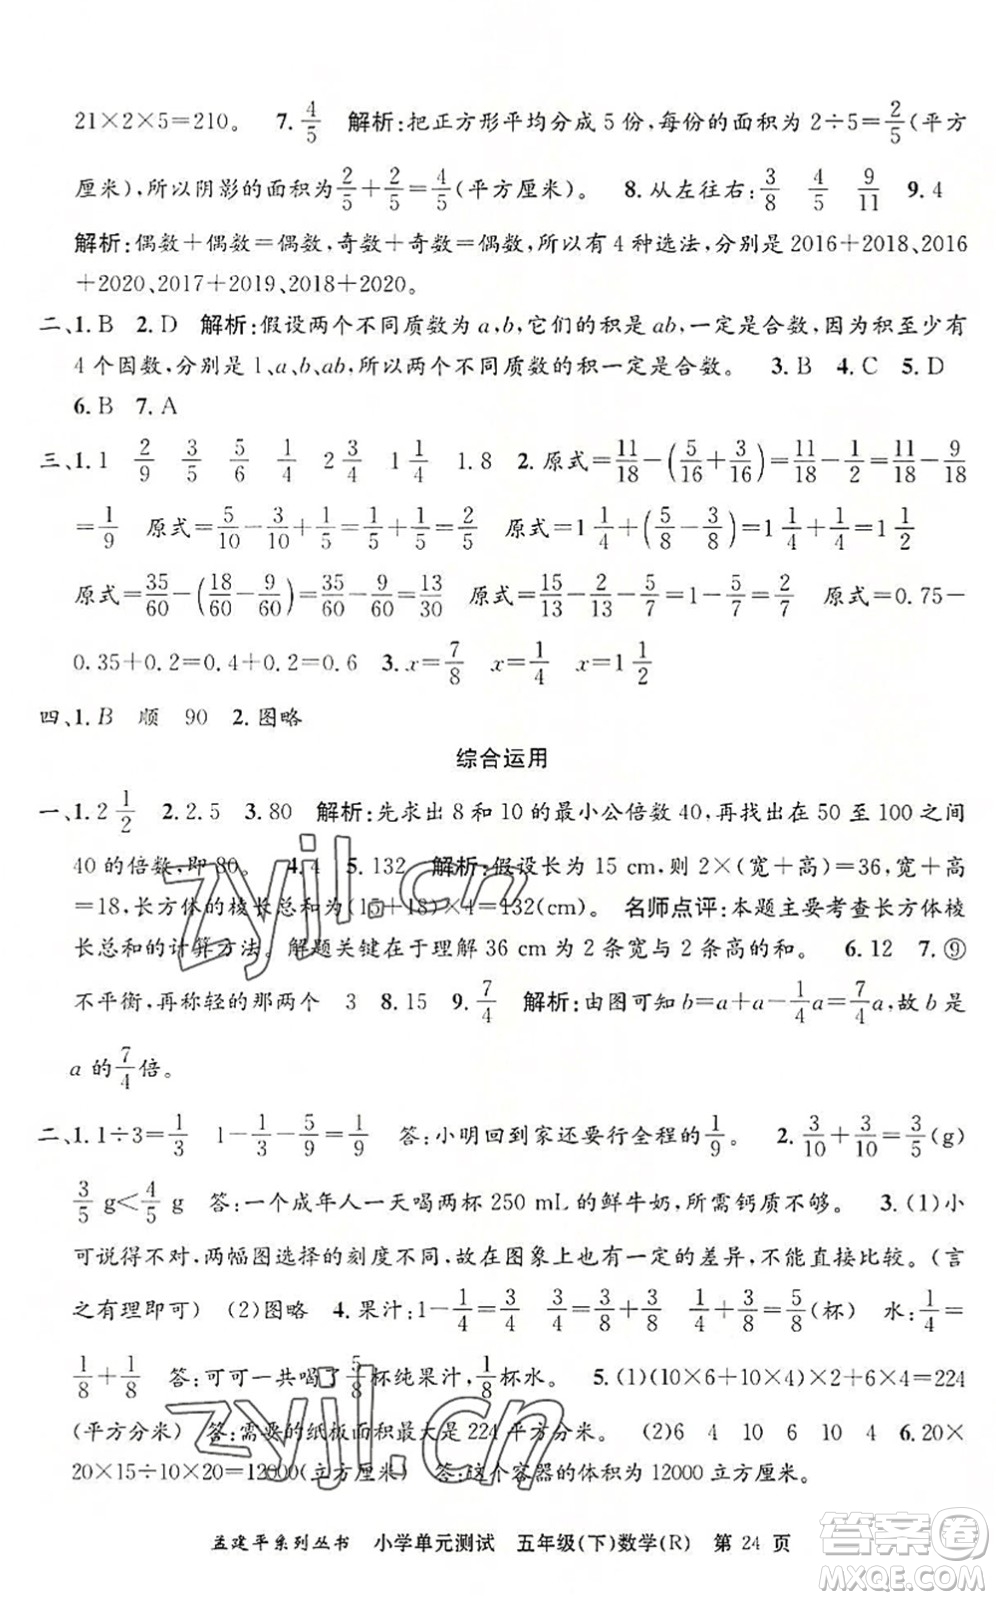 21×2×5=210。 7. 4/5 解析:把正方形平均分成 5 份,每份的面积为 2÷5=2/5(平方
厘米),所以阴影的面积为2/5+2/5=4/5(平方厘米)。 8.从左往右: 3/8 4/5 9/11 9.4
解析:偶数+偶数=偶数,奇数+奇数=偶数,所以有 4 种选法,分别是 2016+2018、2016
+2020、2017+2019、2018+2020。
二、1.B 2.D 解析:假设两个不同质数为 a,b,它们的积是 ab,一定是合数,因为积至少有
4 个因数,分别是 1、a、b、ab,所以两个不同质数的积一定是合数。 3.B 4.C 5.D
6.B 7.A
三、1.1 2/9 3/5 5/6 1/4 2 3/4 1 1/4 1.8 2.原式=11/18-(5/16+3/16)=11/18-1/2=11/18-9/18
=1/9 原式=5/10-3/10+1/5=1/5+1/5=2/5 原式=1 1/4+(5/8-3/8)=1 1/4+1/4=1 1/2
原式=35/60-(18/60-9/60)=35/60-9/60=13/30 原式=15/13-2/13-5/7=1-5/7=2/7 原式=0.75-
0.35+0.2=0.4+0.2=0.6 3.x=7/8 x=1/4 x=1 1/2
四、1.B 顺 90 2.图略
综合运用
一、1.2 1/2 2.2.5 3.80 解析:先求出 8 和 10 的最小公倍数 40,再找出在 50 至 100 之间
40 的倍数,即 80。 4.4 5.132 解析:假设长为 15 cm,则 2×(宽+高)=36,宽+高
=18,长方体的棱长总和为(15+18)×4=132(cm)。 名师点评:本题主要考查长方体棱
长总和的计算方法。解题关键在于理解 36 cm 为 2 条宽与 2 条高的和。 6.12 7.⑨
不平衡,再称轻的那两个 3 8.15 9. 7/4 解析:由图可知 b=a+a-1/4a=7/4a,故 b 是
a 的7/4倍。
二、1.1÷3=1/3 1-1/3-5/9=1/9 答:小明回到家还要行全程的1/9。 2. 3/10+3/10=3/5(g)
3/5 g<4/5 g 答:一个成年人一天喝两杯 250 mL 的鲜牛奶,所需钙质不够。 3.(1)小
可说得不对,两幅图选择的刻度不同,故在图象上也有一定的差异,不能直接比较。(言
之有理即可) (2)图略 4.果汁:1-1/4=3/4 3/4=3/8+3/8 1/4+3/8=5/8(杯) 水:1/4=
1/8+1/8 答:可可一共喝了5/8杯纯果汁,1/8杯水。 5.(1)(10×6+10×4)×2+4×6=224
(平方分米) 答:需要的纸板面积最大是 224 平方分米。 (2)6 4 10 6 10 4 6.20×
20×15÷10×20=12000(立方厘米) 答:这个容器的体积为 12000 立方厘米。
孟建平系列丛书 小学单元测试 五年级(下)数学(R) 第 24 页
zyjl.cn
zyjl.cn
答案圈
MXQE.COM